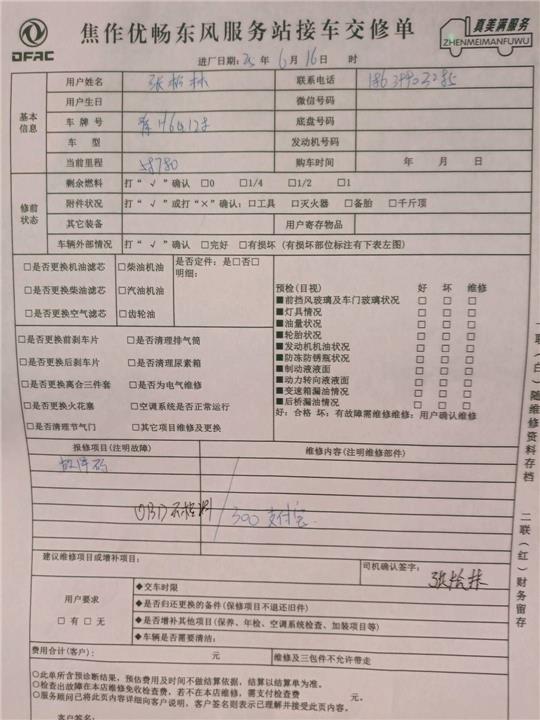 DFAC
焦作优畅东风服务站接车交修单
真美满服务
ZHENMEIMANFUWU
进厂日期:25年 6月16日 时
基本信息
用户姓名 联系电话
用户生日 微信号码
车牌号 底盘号码
车型 发动机号码
当前里程 58780 购车时间 年 月 日
修前状态
剩余燃料 打“√”确认 □0 □1/4 □1/2 □1
附件状况 打“√”或打“×”确认:□工具 □灭火器 □备胎 □千斤顶
其它装备 用户寄存物品
车辆外部情况 打“√”确认 □完好 □有损坏(有损坏部位标注有下表左图)
□是否更换机油滤芯 □柴油机油 是否定件:是□否□
明细:
□是否更换柴油滤芯 □汽油机油
□是否更换空气滤芯 □齿轮油
□是否更换前刹车片 □是否清理排气筒
□是否更换后刹车片 □是否清理尿素箱
□是否更换离合三件套 □是否为电气维修
□是否更换火花塞 □空调系统是否正常运行
□是否清理节气门 □其它项目维修及更换
预检(目视) 好 坏 维修
■前挡风玻璃及车门玻璃状况 □ □ □
■灯具情况 □ □ □
■油量状况 □ □ □
■轮胎状况 □ □ □
■发动机机油状况 □ □ □
■防冻防锈瓶状况 □ □ □
■制动液液面 □ □ □
■动力转向液液面 □ □ □
■变速箱漏油情况 □ □ □
■后桥漏油情况 □ □ □
好:合格 坏:有故障需维修维修:用户确认维修
报修项目(注明故障) 维修内容(注明维修部件)
故障码
OBD 300 支付宝
建议维修项目或增补项目:
司机确认签字:
用户要求
□有 □无
◆交车时限
◆是否归还更换的备件(保修项目不退还旧件)
◆是否增补其他项目(保养、年检、空调系统检查、加装项目等)
◆车辆是否需要清洁:
费用合计(客户): 元 维修及三包件不允许带走
○此单所含预诊断结果,预估费用及时间不做结算依据,结算以结算单为准。
○检查出故障在本店维修免收检查费,若不在本店维修,需支付检查费 元。
○服务顾问已将此页内容详细向客户说明,客户签名则表示已理解并接受此页内容。
客户签名:
一联(白)随维修资料存档
二联(红)财务留存